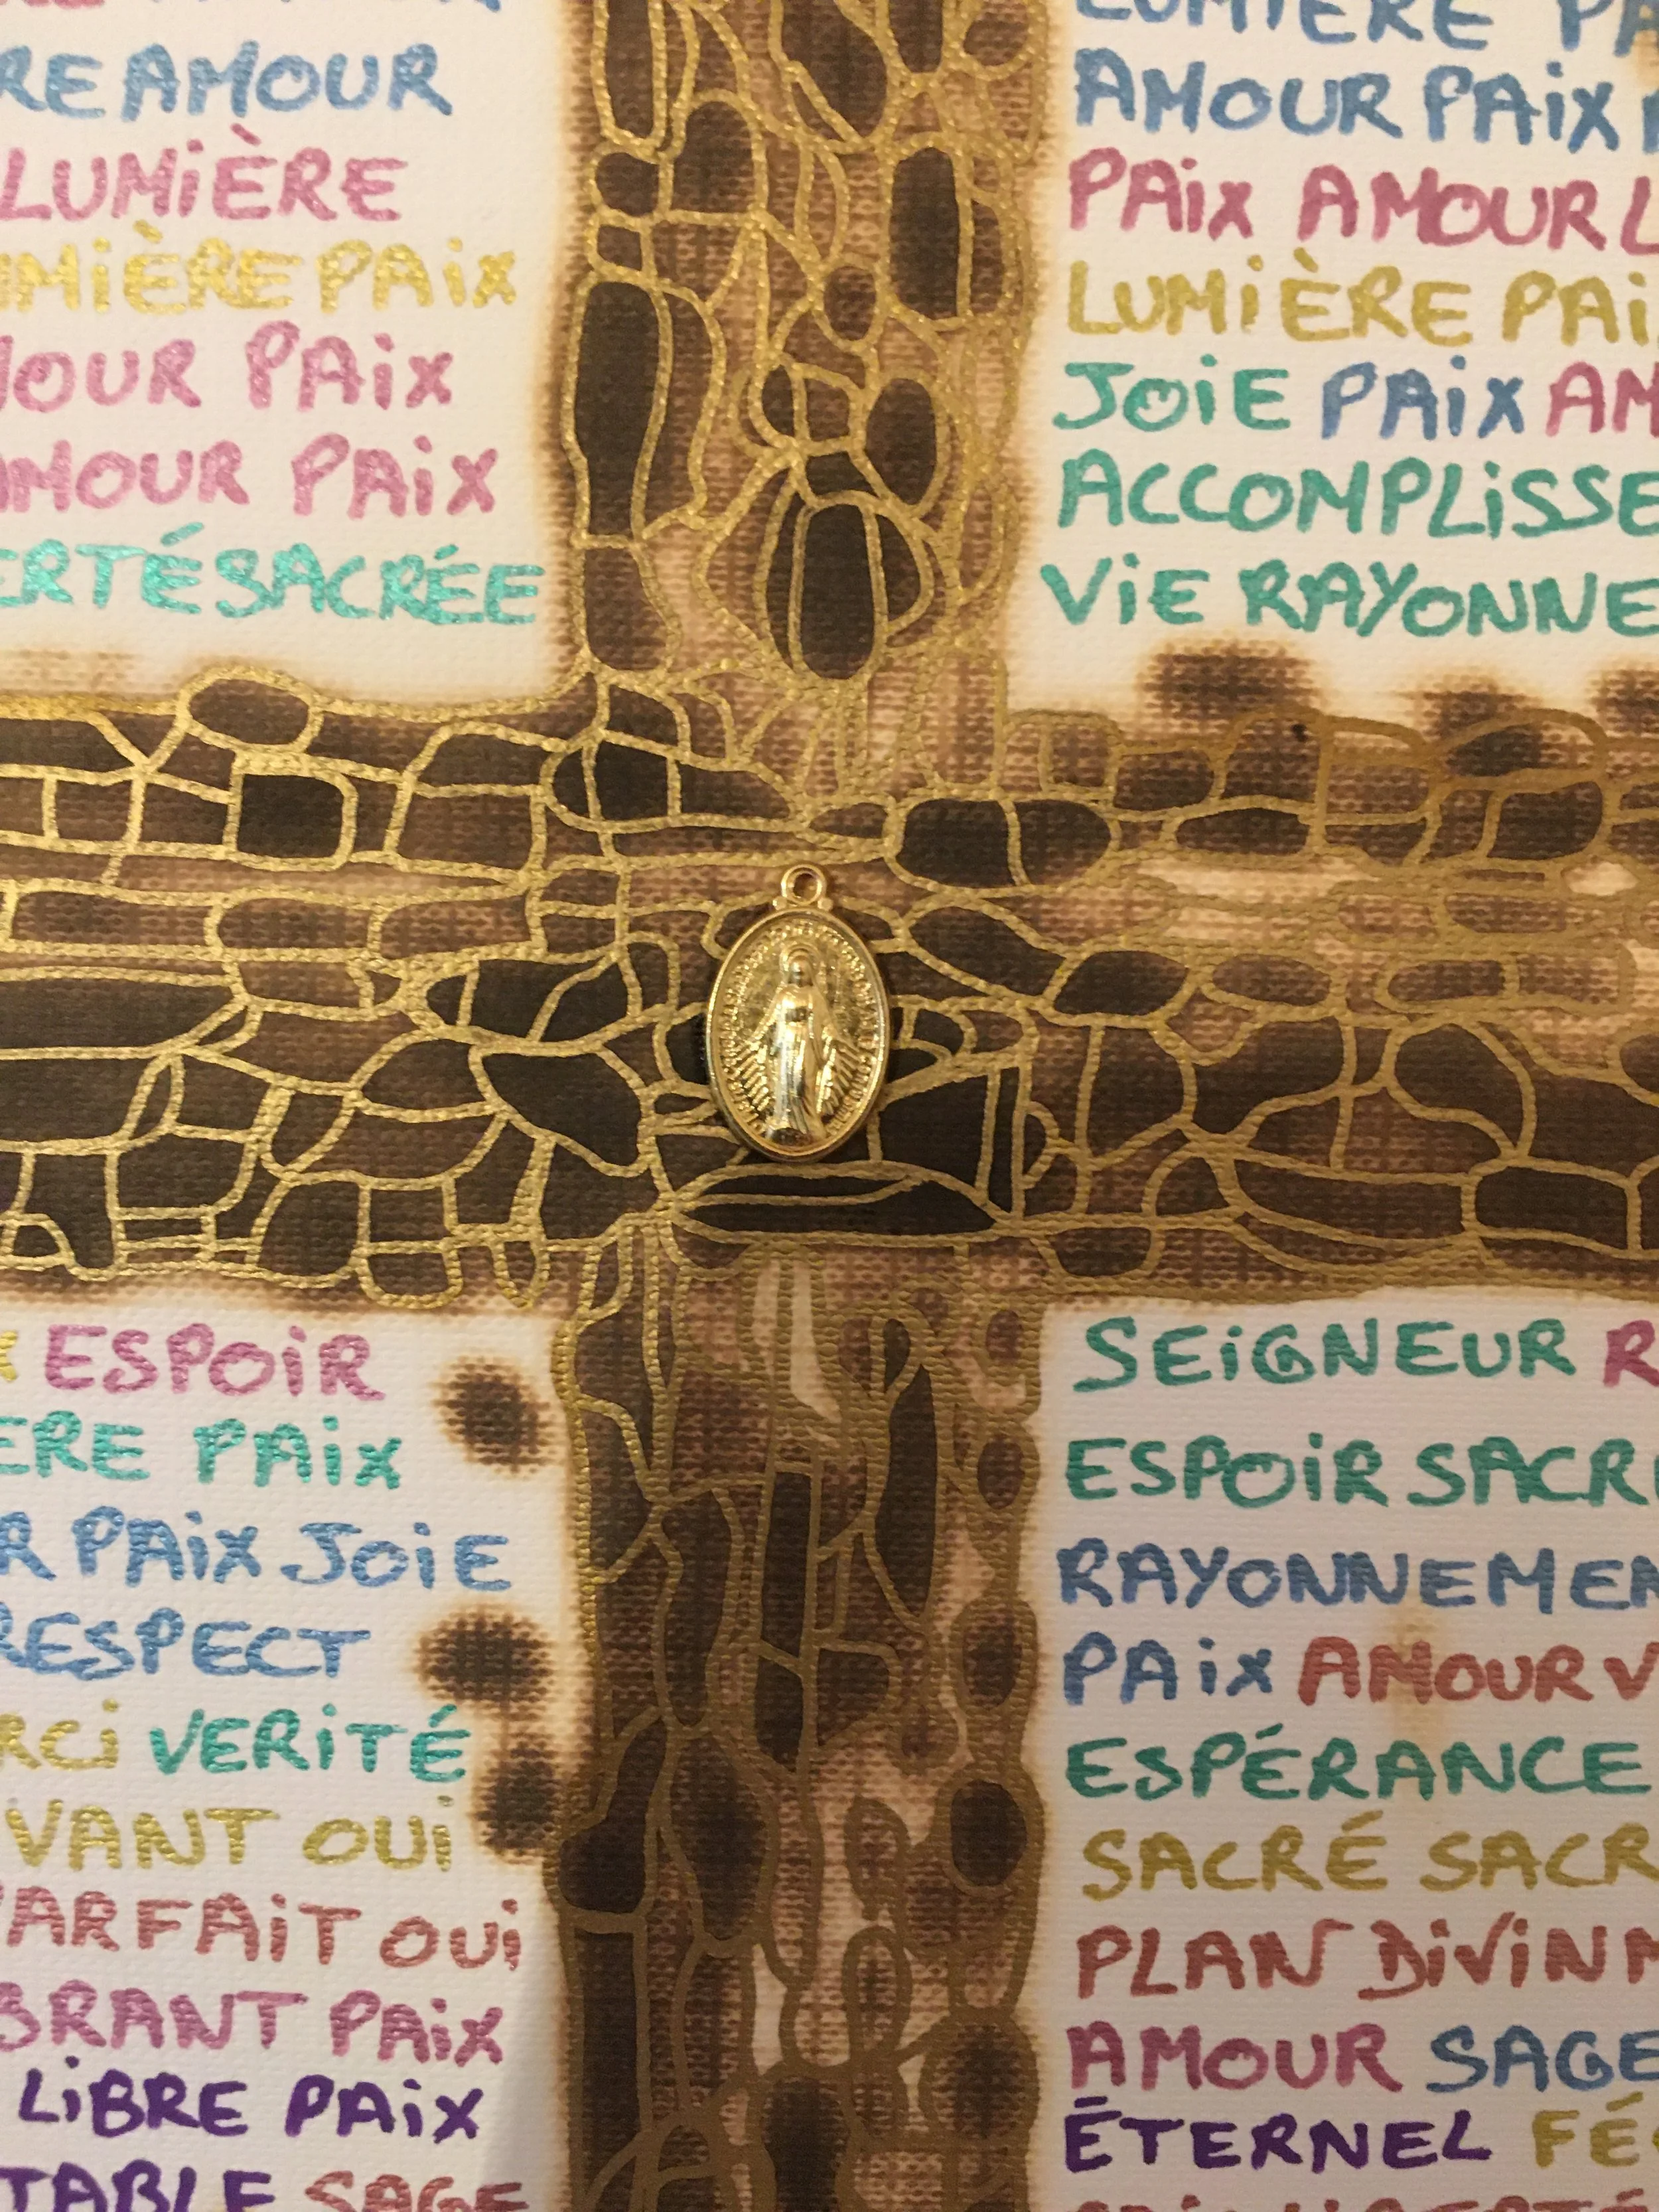 AMOUR
LUMIÈRE
PAIX
PAIX
AMOUR PAIX
SACRÉE
LUMIÈRE
AMOUR PAIX
PAIX AMOUR
LUMIÈRE PAI
JOIE PAIX AM
ACCOMPLISSE
VIE RAYONNE
ESPOIR
PAIX
PAIX JOIE
RESPECT
VERITÉ
VANT OUI
ARFAIT OUI
BRANT PAIX
LIBRE PAIX
TABLE SAGE
SEIGNEUR R
ESPOIR SACR
RAYONNEMEN
PAIX AMOUR V
ESPÉRANCE
SACRÉ SACR
PLAN DIVIN
AMOUR SAGE
ÉTERNEL FÉ